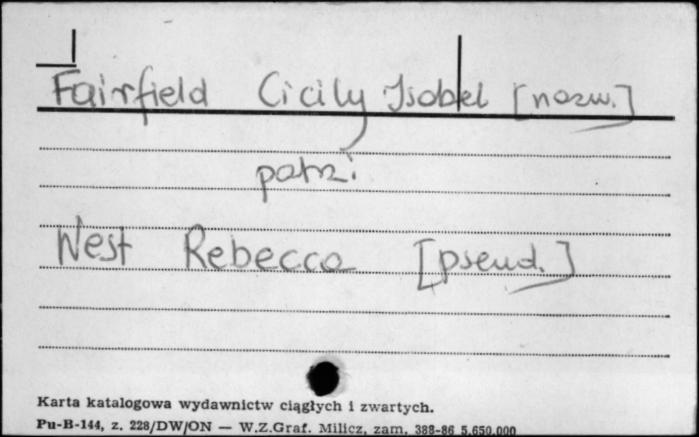 Fairfield Cicily Isobel [nazw.]
patrz:
West Rebecca [pseud.]
Karta katalogowa wydawnictw ciągłych i zwartych.
Pu-B-144, z. 228/DW/ON — W.Z.Graf. Milicz, zam. 388-86 5.650.000